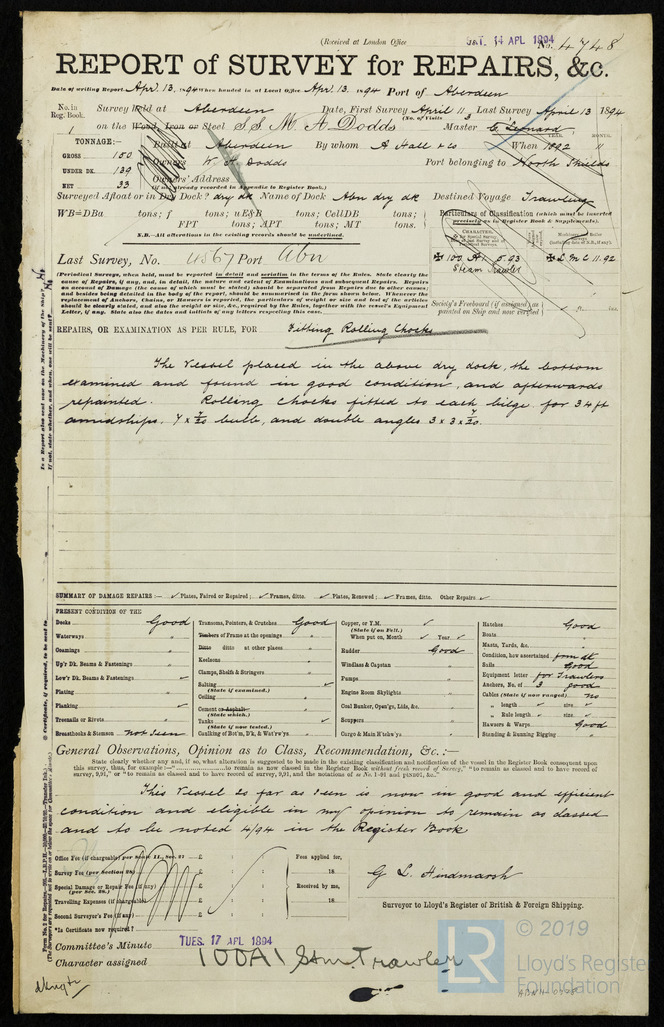 (Received at London Office SAT. 14 APL 1894
No. 4748
REPORT of SURVEY for REPAIRS, &c.
Date of writing Report Apr. 13. 1894 When handed in at Local Office Apr. 13. 1894 Port of Aberdeen
No. in Reg. Book. Survey Held at Aberdeen Date, First Survey April 11 Last Survey April 13 1894
(No. of Visits 3
1 on the Wood, Iron or Steel S.S. M. A. Dodds Master G. Leonard
TONNAGE:— Built at Aberdeen By whom A Hall & Co When 1892 11
YEAR. MONTH.
GROSS 150 Owners W. H. Dodds Port belonging to North Shields
UNDER DK. 139 Owners' Address
NET 33 (If not already recorded in Appendix to Register Book.)
Surveyed Afloat or in Dry Dock? dry dk Name of Dock Abn dry dk Destined Voyage Trawling
WB=DBa tons; f tons; uE&B tons; CellDB tons;
FPT tons; APT tons; MT tons.
N.B.—All alterations in the existing records should be underlined.
Particulars of Classification (which must be inserted precisely as in Register Book & Supplements).
CHARACTER.
Last Survey, No. 4567 Port Abn
✠ 100 A1 5.93 ✠ LMC 11.92
Steam Trawler
(Periodical Surveys, when held, must be reported in detail and seriatim in the terms of the Rules. State clearly the
cause of Repairs, if any, and, in detail, the nature and extent of Examinations and subsequent Repairs. Repairs
on account of Damage (the cause of which must be stated) should be separated from Repairs due to other causes;
and besides being detailed in the body of the report, should be summarised in the form shown below. Whenever the
replacement of Anchors, Chains, or Hawsers is reported, the particulars of weight or size and test of the articles
should be clearly stated, and also the weight or size, &c., required by the Rules, together with the vessel's Equipment
Letter, if any. State also the dates and initials of any letters respecting this case.
Society's Freeboard (if assigned) as
painted on Ship and now verified
REPAIRS, OR EXAMINATION AS PER RULE, FOR Fitting Rolling Chocks
The Vessel placed in the above dry dock, the bottom
examined and found in good condition, and afterwards
repainted. Rolling Chocks fitted to each bilge for 34 ft
amidships. 7 x 7/20 bulb, and double angles 3 x 3 x 7/20.
SUMMARY OF DAMAGE REPAIRS:— ✓ Plates, Faired or Repaired; ✓ Frames, ditto. ✓ Plates, Renewed; ✓ Frames, ditto. Other Repairs ✓
PRESENT CONDITION OF THE
Decks Good
Waterways "
Coamings "
Up'r Dk. Beams & Fastenings "
Low'r Dk. Beams & Fastenings ✓
Plating "
Planking ✓
Treenails or Rivets "
Breasthooks & Stemson not seen
Transoms, Pointers, & Crutches Good
Timbers of Frame at the openings "
Ditto ditto at other places "
Keelsons "
Clamps, Shelfs & Stringers "
Salting ✓
(State if examined.)
Ceiling "
Cement or Asphalt
(State which.)
Tanks ✓
(State if now tested.)
Caulking of Bot'm, D'k, & Wat'rw'ys "
Copper, or Y.M. ✓
(State if on Felt.)
When put on, Month ✓ Year ✓
Rudder Good
Windlass & Capstan "
Pumps "
Engine Room Skylights "
Coal Bunker, Open'gs, Lids, &c. "
Scuppers "
Cargo & Main H'tchw'ys "
Hatches Good
Boats "
Masts, Yards, &c. "
Condition, how ascertained from dk
Sails Good
Equipment letter for Trawlers
Anchors, No. of 3 good
Cables (State if now ranged) no
" length ✓ size ✓
" Rule length ✓ size ✓
Hawsers & Warps Good
Standing & Running Rigging "
General Observations, Opinion as to Class, Recommendation, &c.:—
State clearly whether any, and if so, what alteration is suggested to be made in the existing classification and notification of the vessel in the Register Book consequent upon
this survey, thus, for example:—"..........to remain as now classed in the Register Book without fresh record of Survey," "to remain as classed and to have record of
survey, 9,91," or "to remain as classed and to have record of survey, 9,91, and the notations of ss No. 1-91 and ptND91, &c."
This Vessel as far as seen is now in good and efficient
condition and eligible in my opinion to remain as classed
and to be noted 4/94 in the Register Book
Office Fee (if chargeable) per Scale II., Sec. 27 £ : :
Survey Fee (per Section 28) £ : :
Special Damage or Repair Fee (if any) £ : :
(per Sec. 28.)
Travelling Expenses (if chargeable) £ : :
Second Surveyor's Fee (if any) £ : :
Fees applied for,
18
Received by me,
18
G. L. Hindmarsh
Surveyor to Lloyd's Register of British & Foreign Shipping.
*Is Certificate now required?
Committee's Minute TUES. 17 APL 1894
Character assigned 100A1 Stm. Trawler
© 2019
LR
Lloyd's Register
Foundation